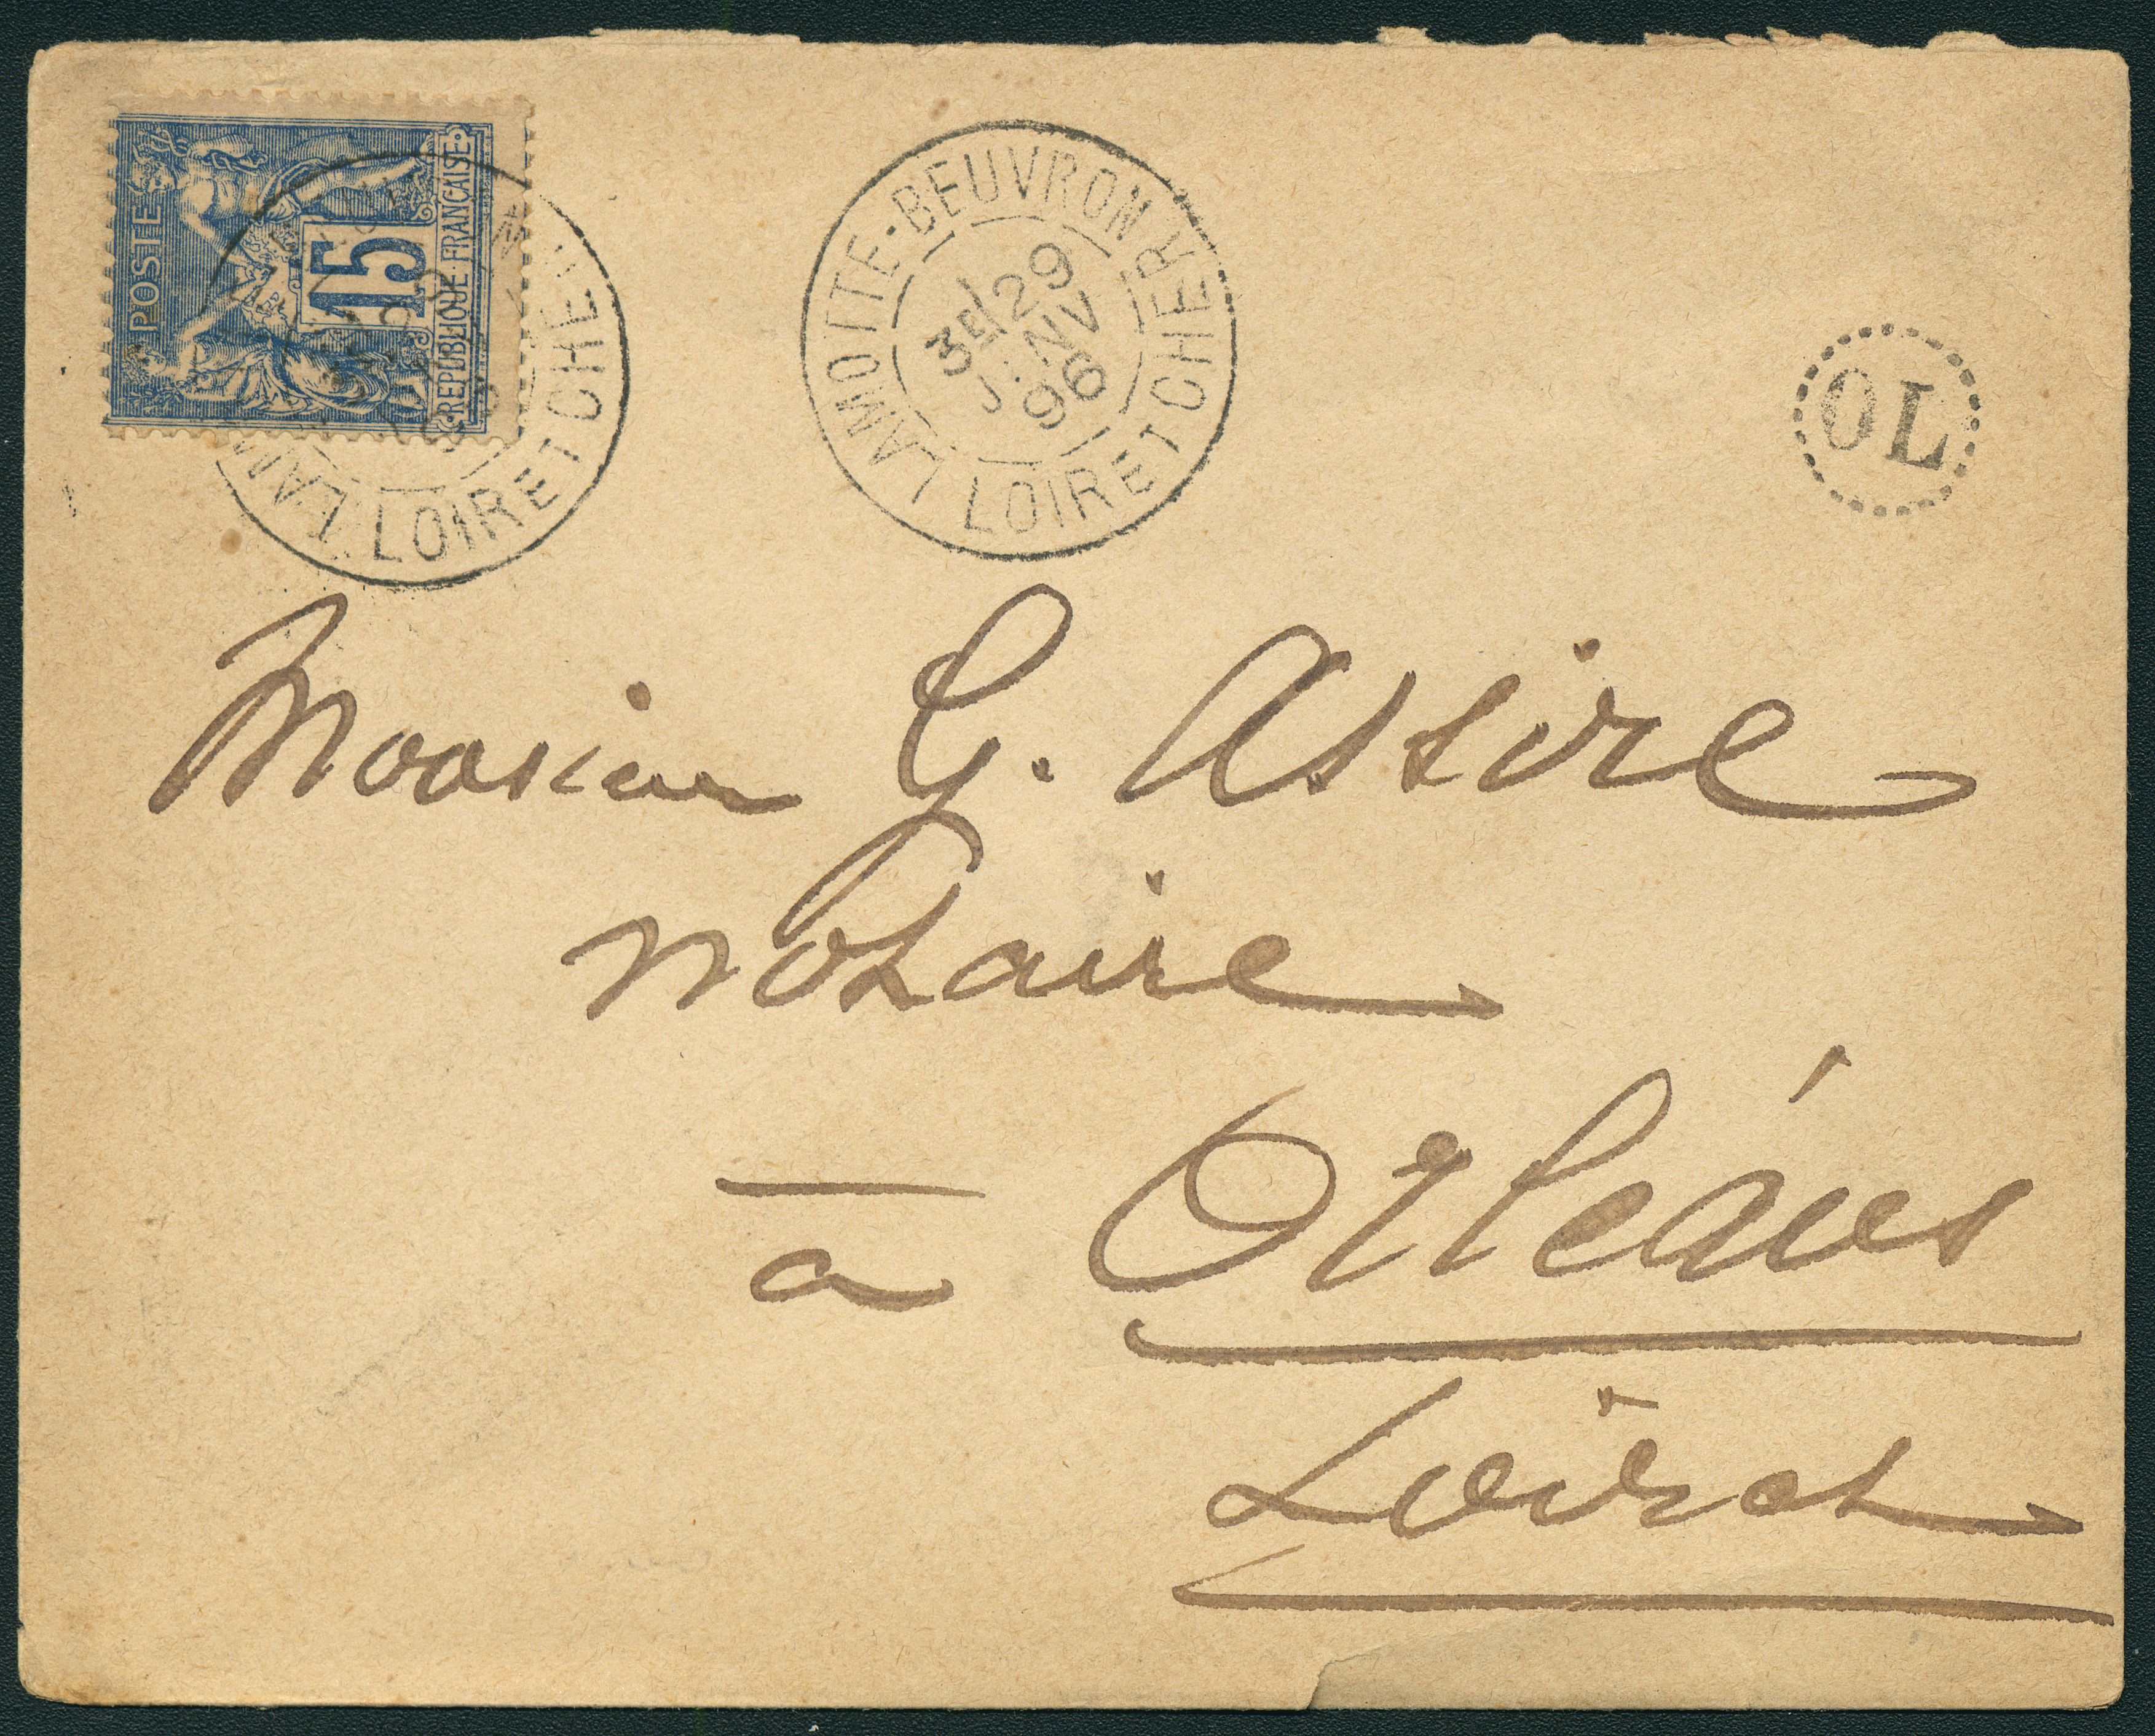 POSTE
15
REPUBLIQUE FRANCAISE
LOIR ET CHER
LAMOTTE-BEUVRON
3E/ 29
JANV
96
LOIR ET CHER
OL
Monsieur G. Assire
Notaire
à Orléans
Loiret